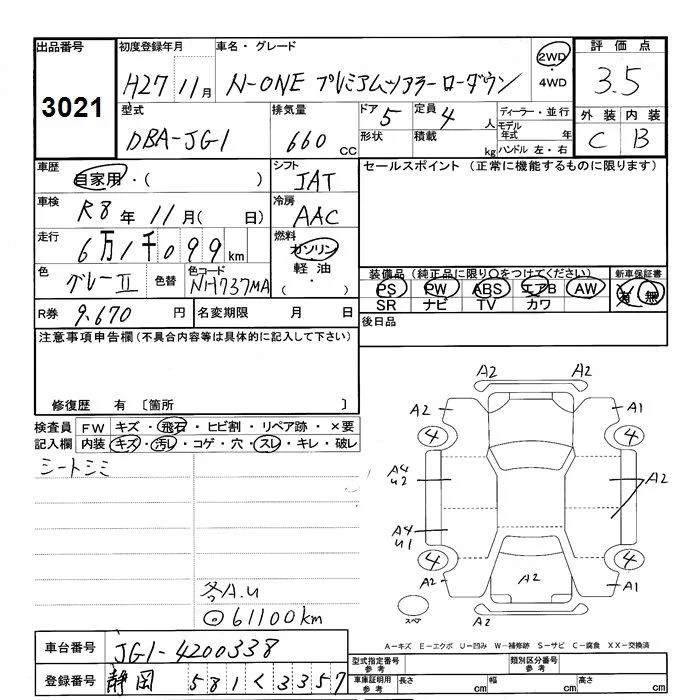 出品番号 初度登録年月 車名・グレード 2WD ・4WD 評価点
3021 H27 11月 N-ONE プレミアムツアラーローダウン 3.5
型式 排気量 ドア 5 定員 4 人 ディーラー・並行 外装 内装
DBA-JG1 660 CC 形状 積載 kg モデル年式 年 C B
ハンドル 左・右
車歴 自家用・( ) シフト IAT セールスポイント (正常に機能するものに限ります)
車検 R8年 11月( 日) 冷房 AAC
走行 6万1千099km 燃料 ガソリン 軽油 ・( )
色 グレーII 色替 色コード NH737MA 装備品(純正品に限り○をつけてください) 新車保証書
PS PW ABS エアB AW 有 無
SR ナビ TV カワ
R券 9,670 円 名変期限 月 日 後日品
注意事項申告欄(不具合内容等は具体的に記入して下さい)
修復歴 有 〔箇所 〕
検査員記入欄 FW キズ・飛石・ヒビ割・リペア跡・×要
内装 キズ・汚レ・コゲ・穴・スレ・キレ・破レ
シートシミ
A2 A2
A2 A1
4 4
A4 U2 A2
A4 U1
4 4
A2 A2 A1
A2
スペア
冬A.U
◎61100km
A-キズ E-エクボ U-凹み W-補修跡 S-サビ C-腐食 XX-交換済
車台番号 JG1-4200338
型式指定番号 参考 類別区分番号 参考
登録番号 静岡 581 く 3357
車庫証明用 参考 長さ cm 幅 cm 高さ cm